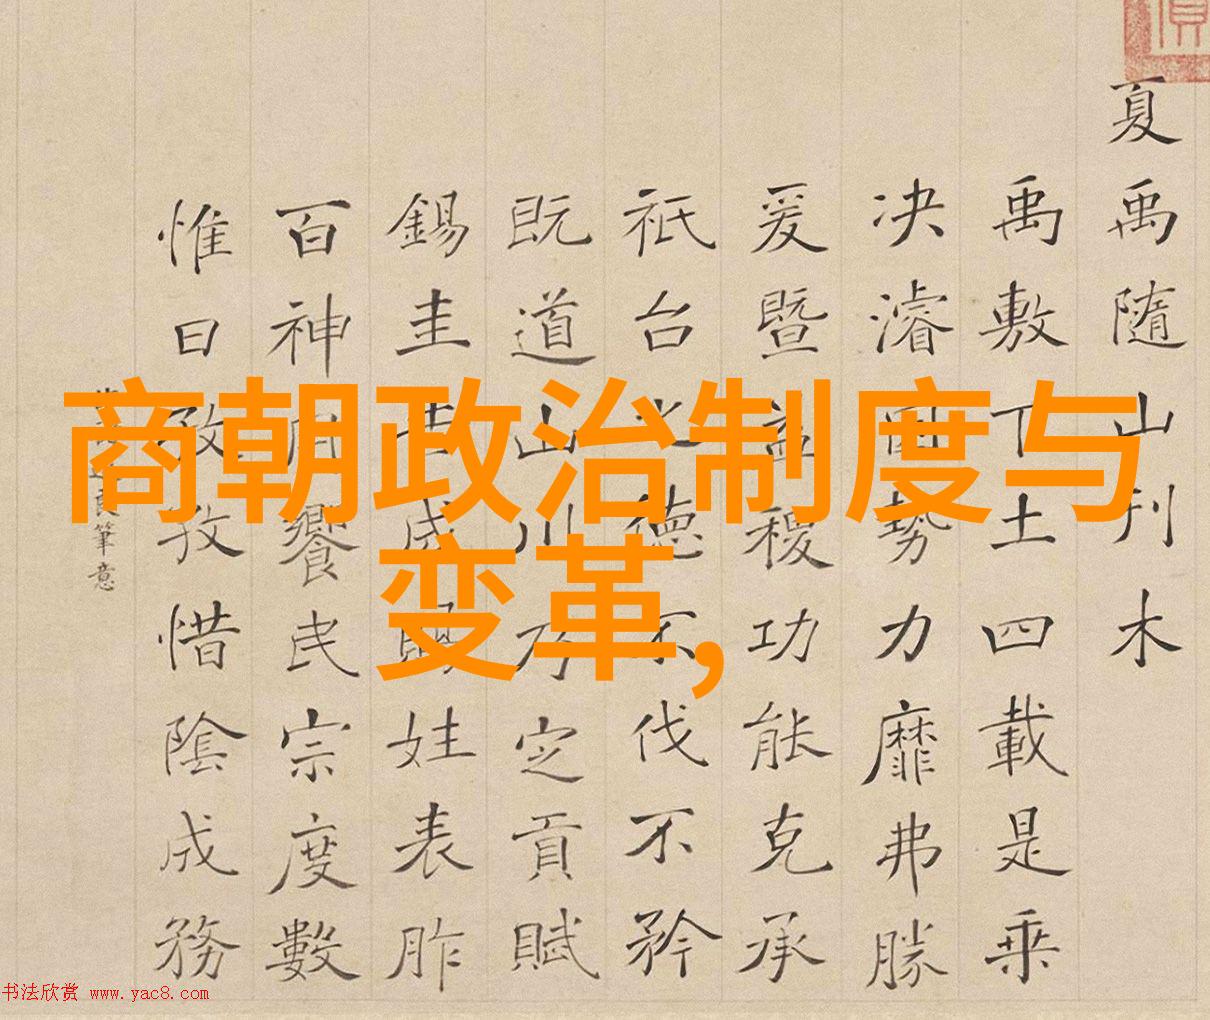 商朝政治制度与
变革,
夏禹隨山刊木
禹敷下土四載是乘
决濬勢力靡弗勝
爰暨益稷功能克承
祇台之德不伐不矜
既道山川乃定貢賦
錫圭告成賜姓表胙
百神饗民宗度數
惟日孜孜惜陰成務
筆意
书法欣赏 www.yac8.com